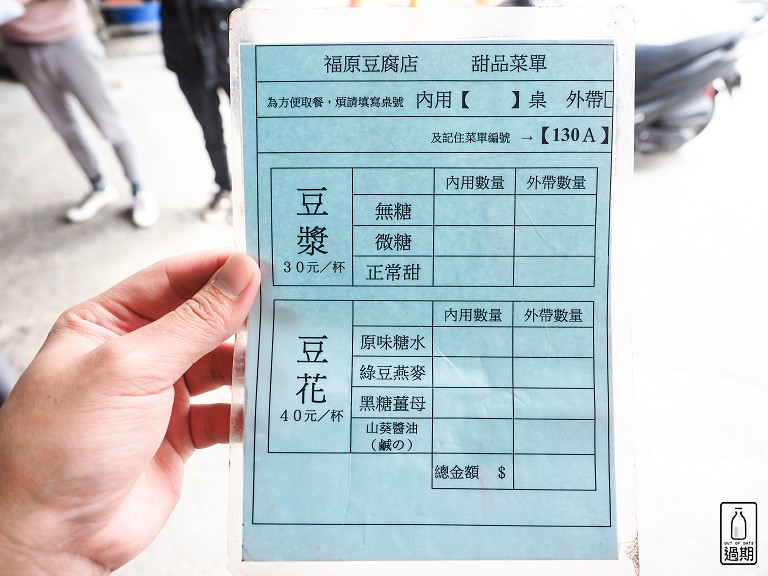 福原豆腐店 甜品菜單
為方便取餐，煩請填寫桌號 內用【 】桌 外帶□
及記住菜單編號 →【130A】
豆漿
30元／杯
內用數量 外帶數量
無糖
微糖
正常甜
豆花
40元／杯
內用數量 外帶數量
原味糖水
綠豆燕麥
黑糖薑母
山葵醬油
（鹹の）
總金額 $
OUT OF DATE
過期